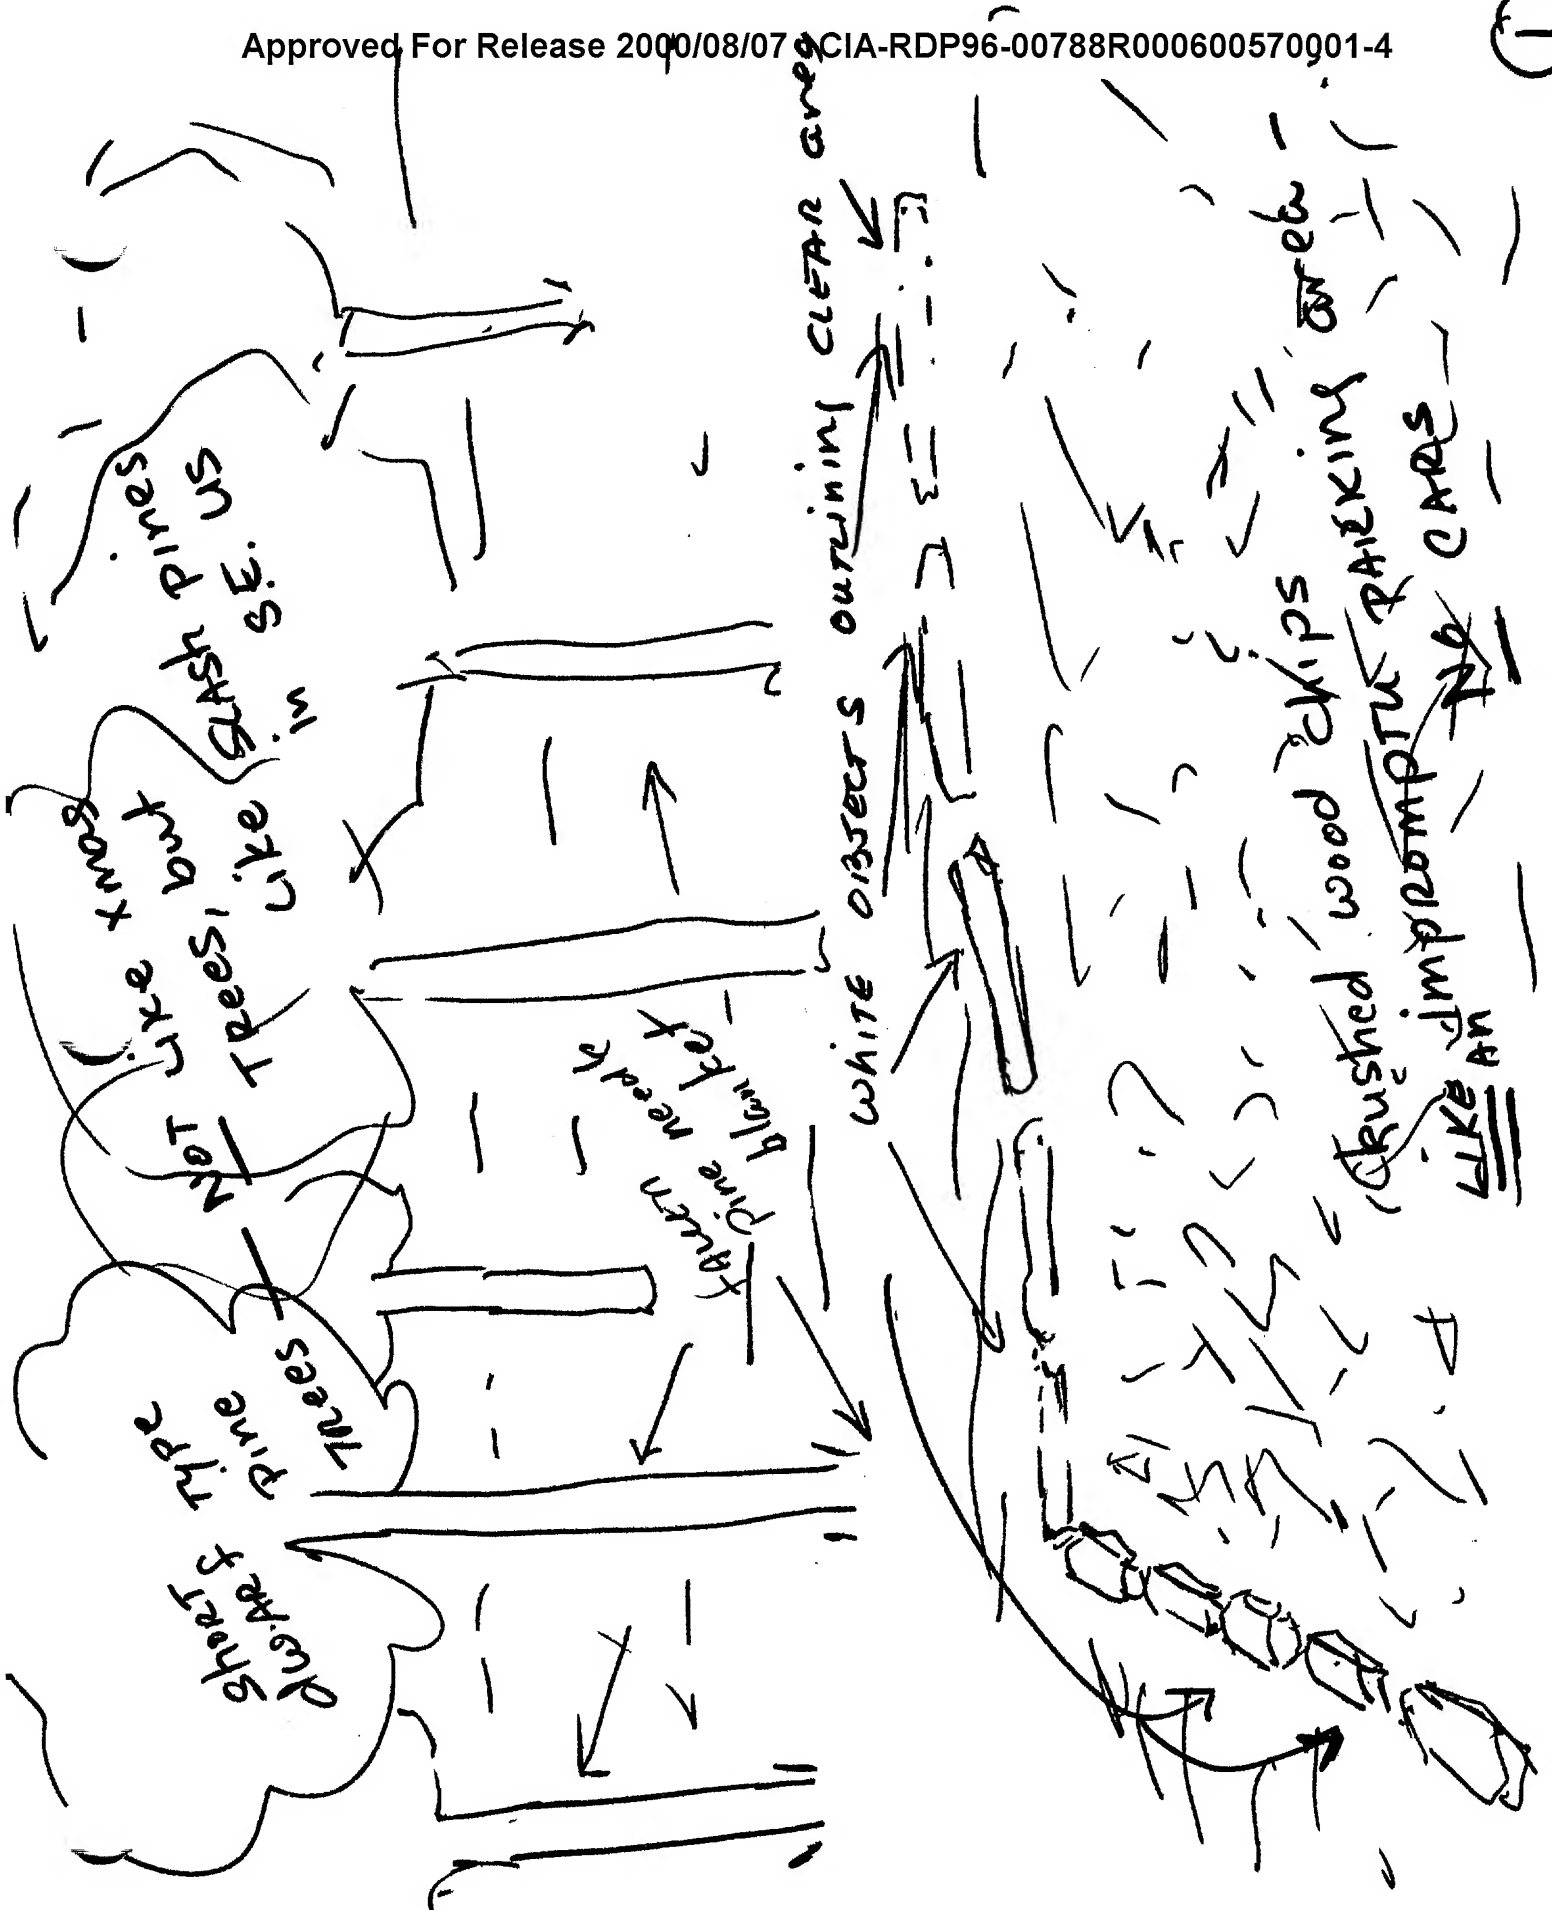 Approved For Release 2000/08/07 : CIA-RDP96-00788R000600570001-4
1
SHORT TYPE
dWARF PINE
TREES - NOT LIKE xmas
TREES, but
LIKE SLASH PINES
in S.E. US
FALLEN
PINE needle
blanket -
WHITE OBJECTS OUTLINING CLEAR area
CRUSHED WOOD CHIPS
LIKE AN IMPROMPTU PARKING area -
NO CARS